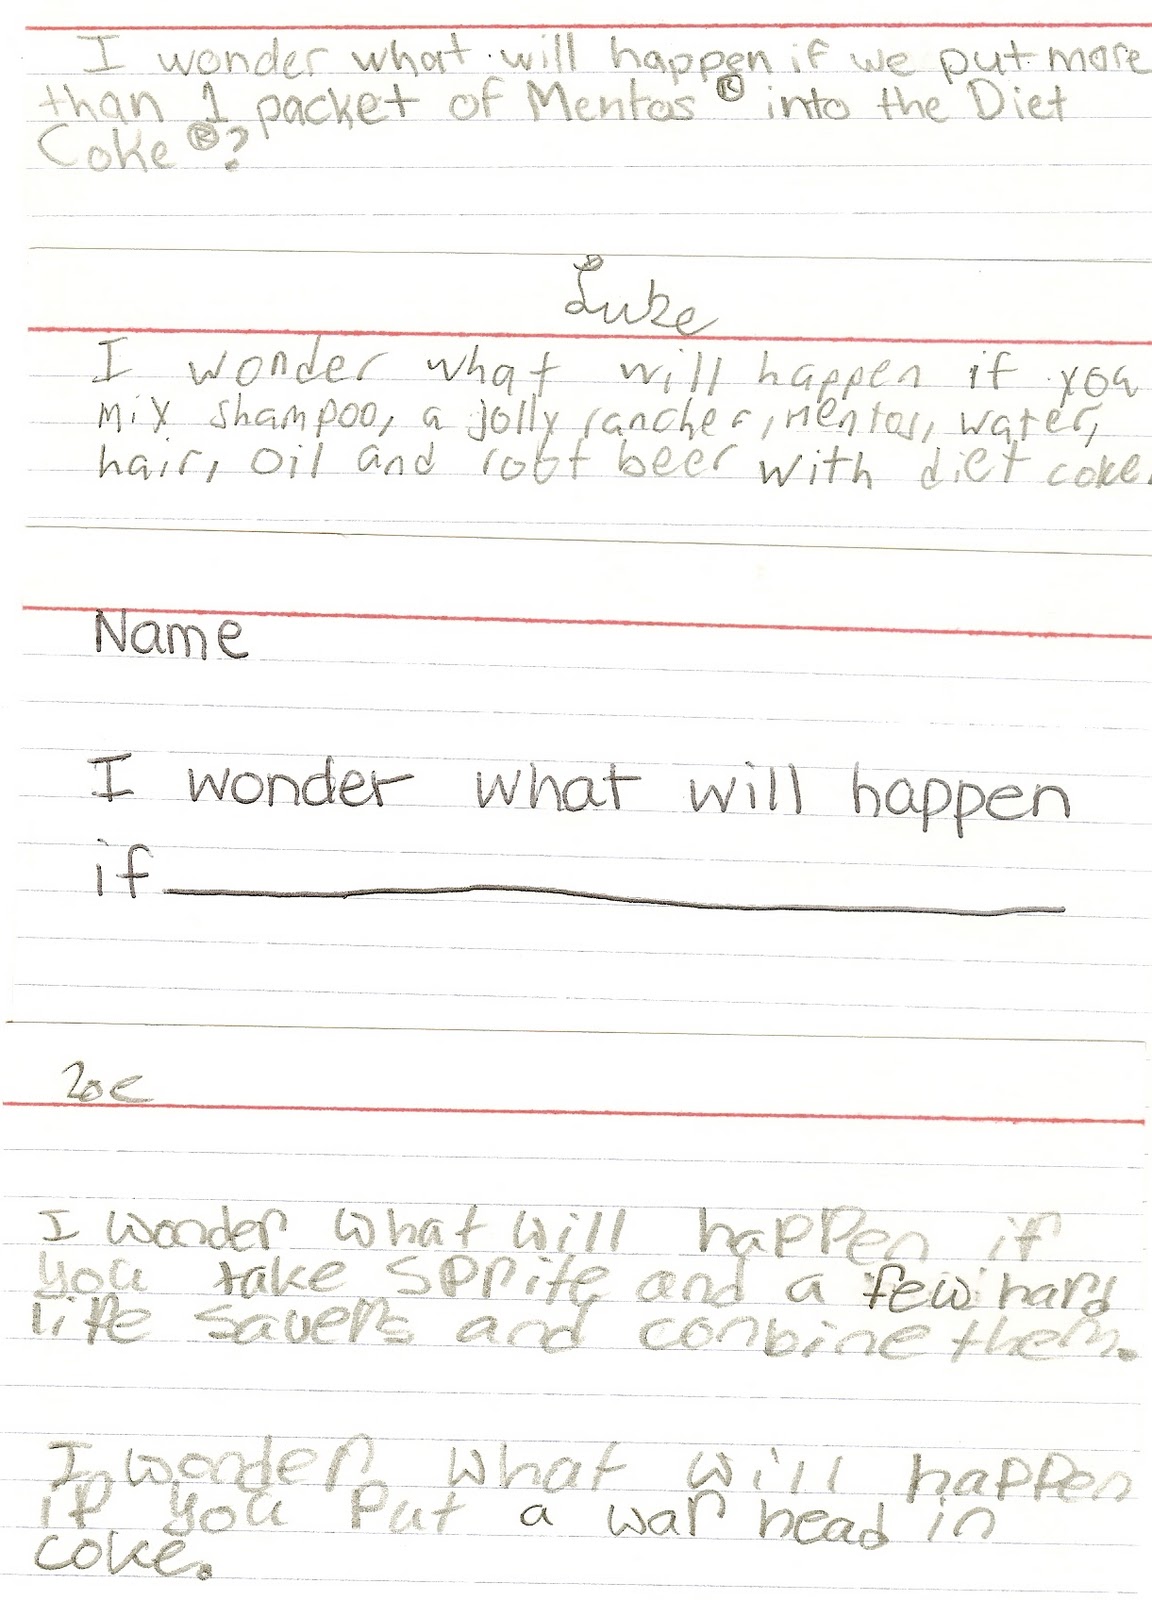 I wonder what will happen if we put more
than 1 packet of Mentos® into the Diet
Coke®?
Luke
I wonder what will happen if you
mix shampoo, a jolly rancher, mentos, water,
hair, oil and root beer with diet coke.
Name
I wonder what will happen
if
Zoe
I wonder what will happen if
you take sprite and a few hard
life savers and conbine them.
I wonder what will happen
if you put a war head in
coke.